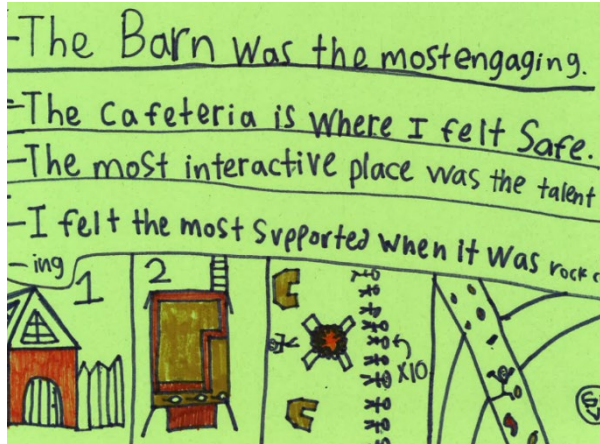 -The Barn was the most engaging.
-The cafeteria is where I felt safe.
-The most interactive place was the talent
-I felt the most supported when it was rock c
-ing
1
2
X10